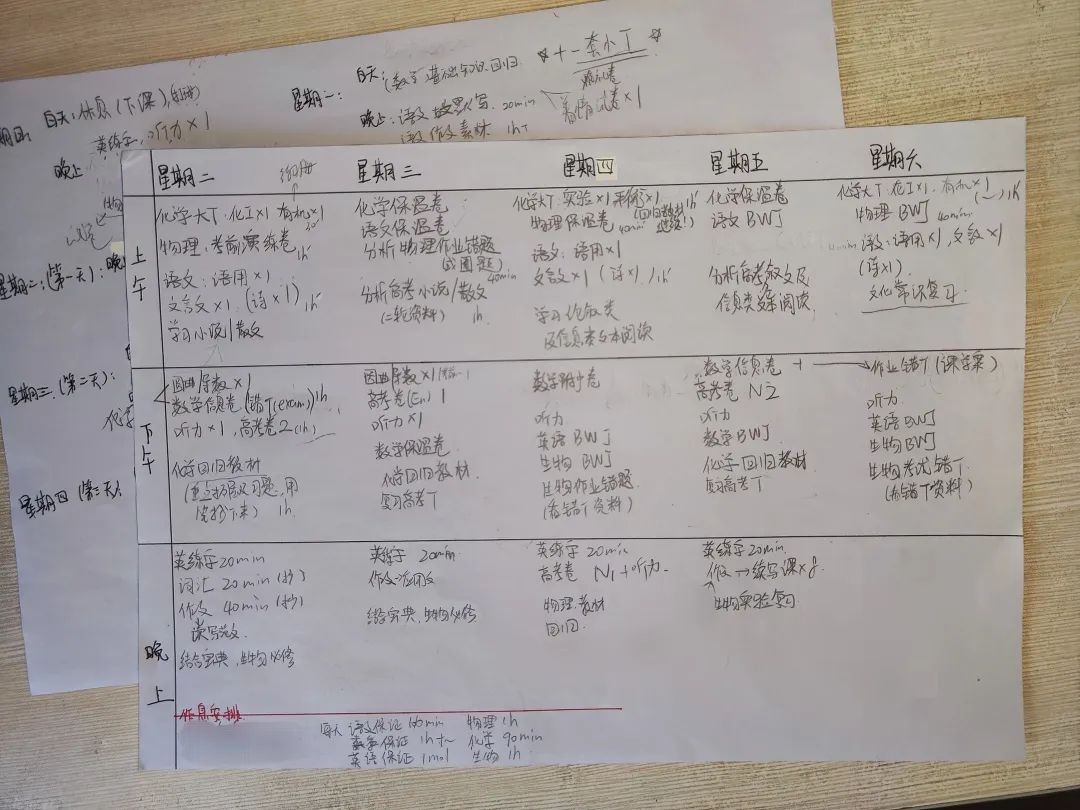 白天:休息(下课)
英练字, 听力×1
晚上
星期一:
白天:(数学)基础知识回归
晚上:语文 默写 20min
语文 作文素材 1h
试卷×1
星期二:(第一天):晚
星期三:(第二天):
星期四(第三天):
星期二 星期三 星期四 星期五 星期六
上午
化学大T·化I×1 有机×1
物理:考前演练卷 1h
语文:语用×1
文言文×1.(诗×1),1h
学习小说/散文
化学保温卷
语文保温卷
分析物理作业错题
40min
分析高考小说/散文
(二轮资料) 1h
化学大T·实验×1 平衡×1 1h
物理保温卷 40min (回归教材
语文:语用×1
文言文×1(诗×1),1h
学习论叙类
及信息类文本阅读
化学保温卷
语文BWJ
分析高考散文及
信息类阅读
化学大T·化I×1·有机×1 1h
物理 BWJ 40min
语文:语用×1,文言文×1
(诗×1)
文化常识复习
下午
圆曲导数×1
数学信息卷(错T(exam))1h
听力×1,高考卷2(1h)
化学回归教材
1h
圆曲导数×1
高考卷(En)1
听力×1
数学保温卷
化学回归教材
复习高考T
数学押卷
听力
英语BWJ
生物BWJ
生物作业错题
(看错T资料)
数学信息卷 + → 作业错T(课学案)
高考卷 N2
听力
数学BWJ
化学回归教材
复习高考T
听力
英语BWJ
生物BWJ
生物考试错T
(看错T资料)
晚上
英练字20min
词汇 20min(抄)
作文 40min(抄)
读写范文
结合字典,生物必修
英练字 20min
作文-应用文
结合字典,生物必修
英练字 20min
高考卷 N1+听力
物理教材
回归
英练字20min
作文→续写课×8
生物实验复习
作息安排
每天 语文保证 100min 物理 1h
数学保证 1h+ 化学 90min
英语保证 1mol 生物 1h